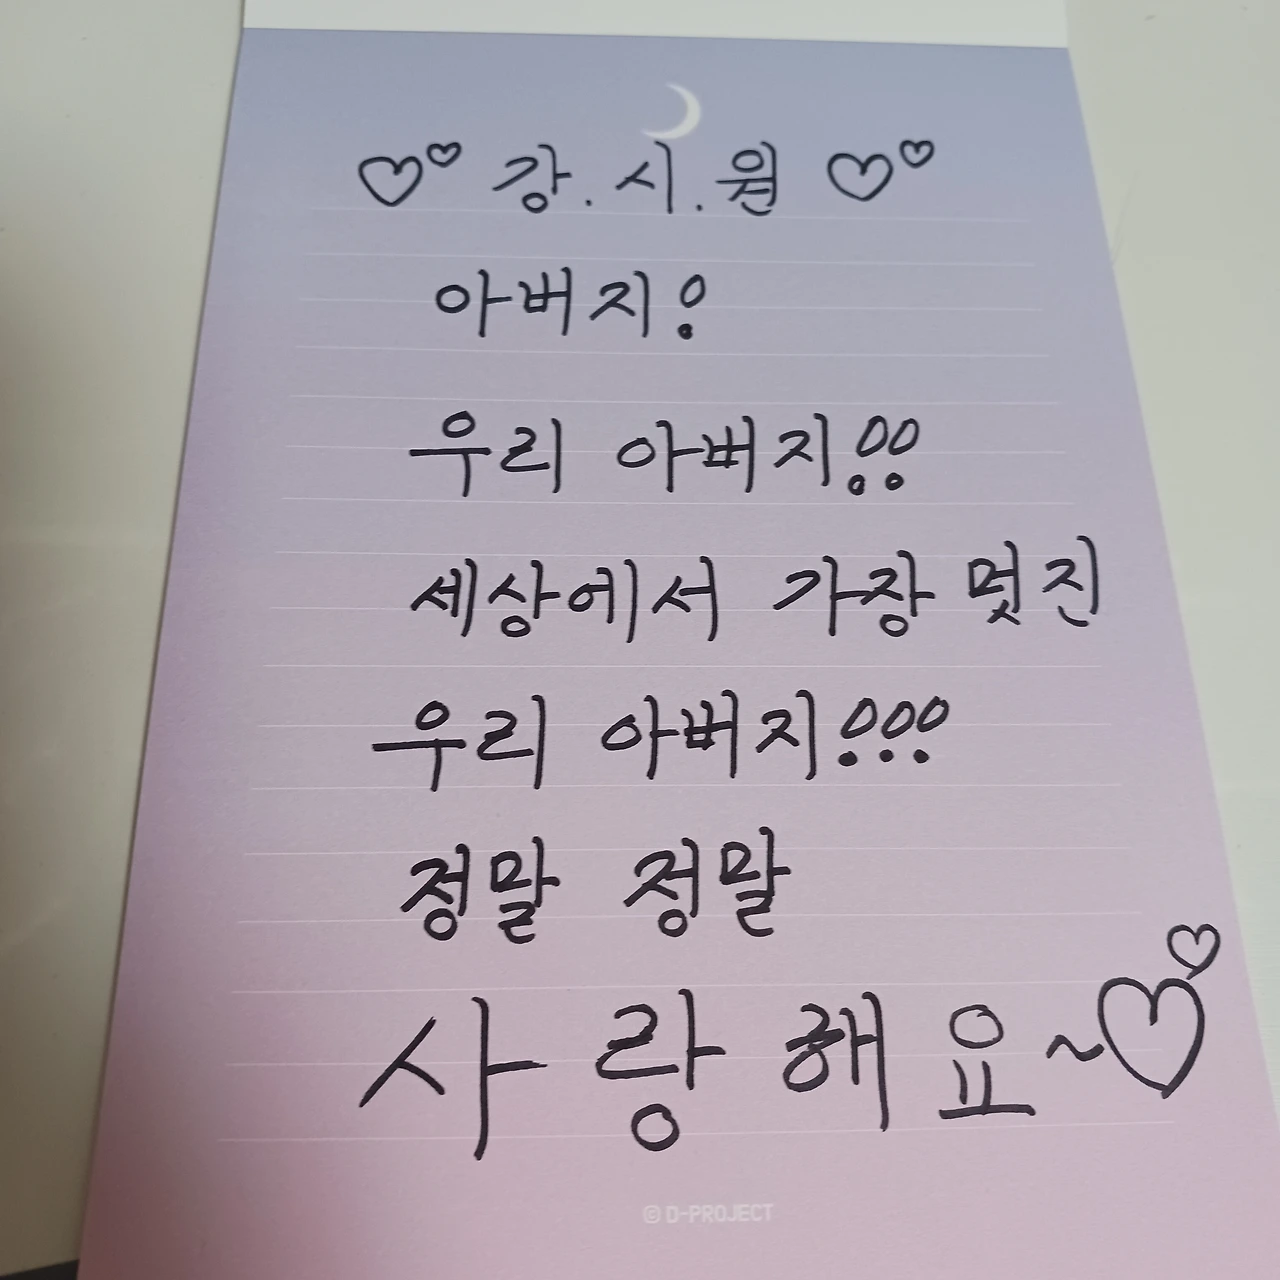 ♡♡ 강.시.원 ♡♡
아버지!
우리 아버지!!
세상에서 가장 멋진
우리 아버지!!!
정말 정말
사랑해요~♡♡
© D-PROJECT